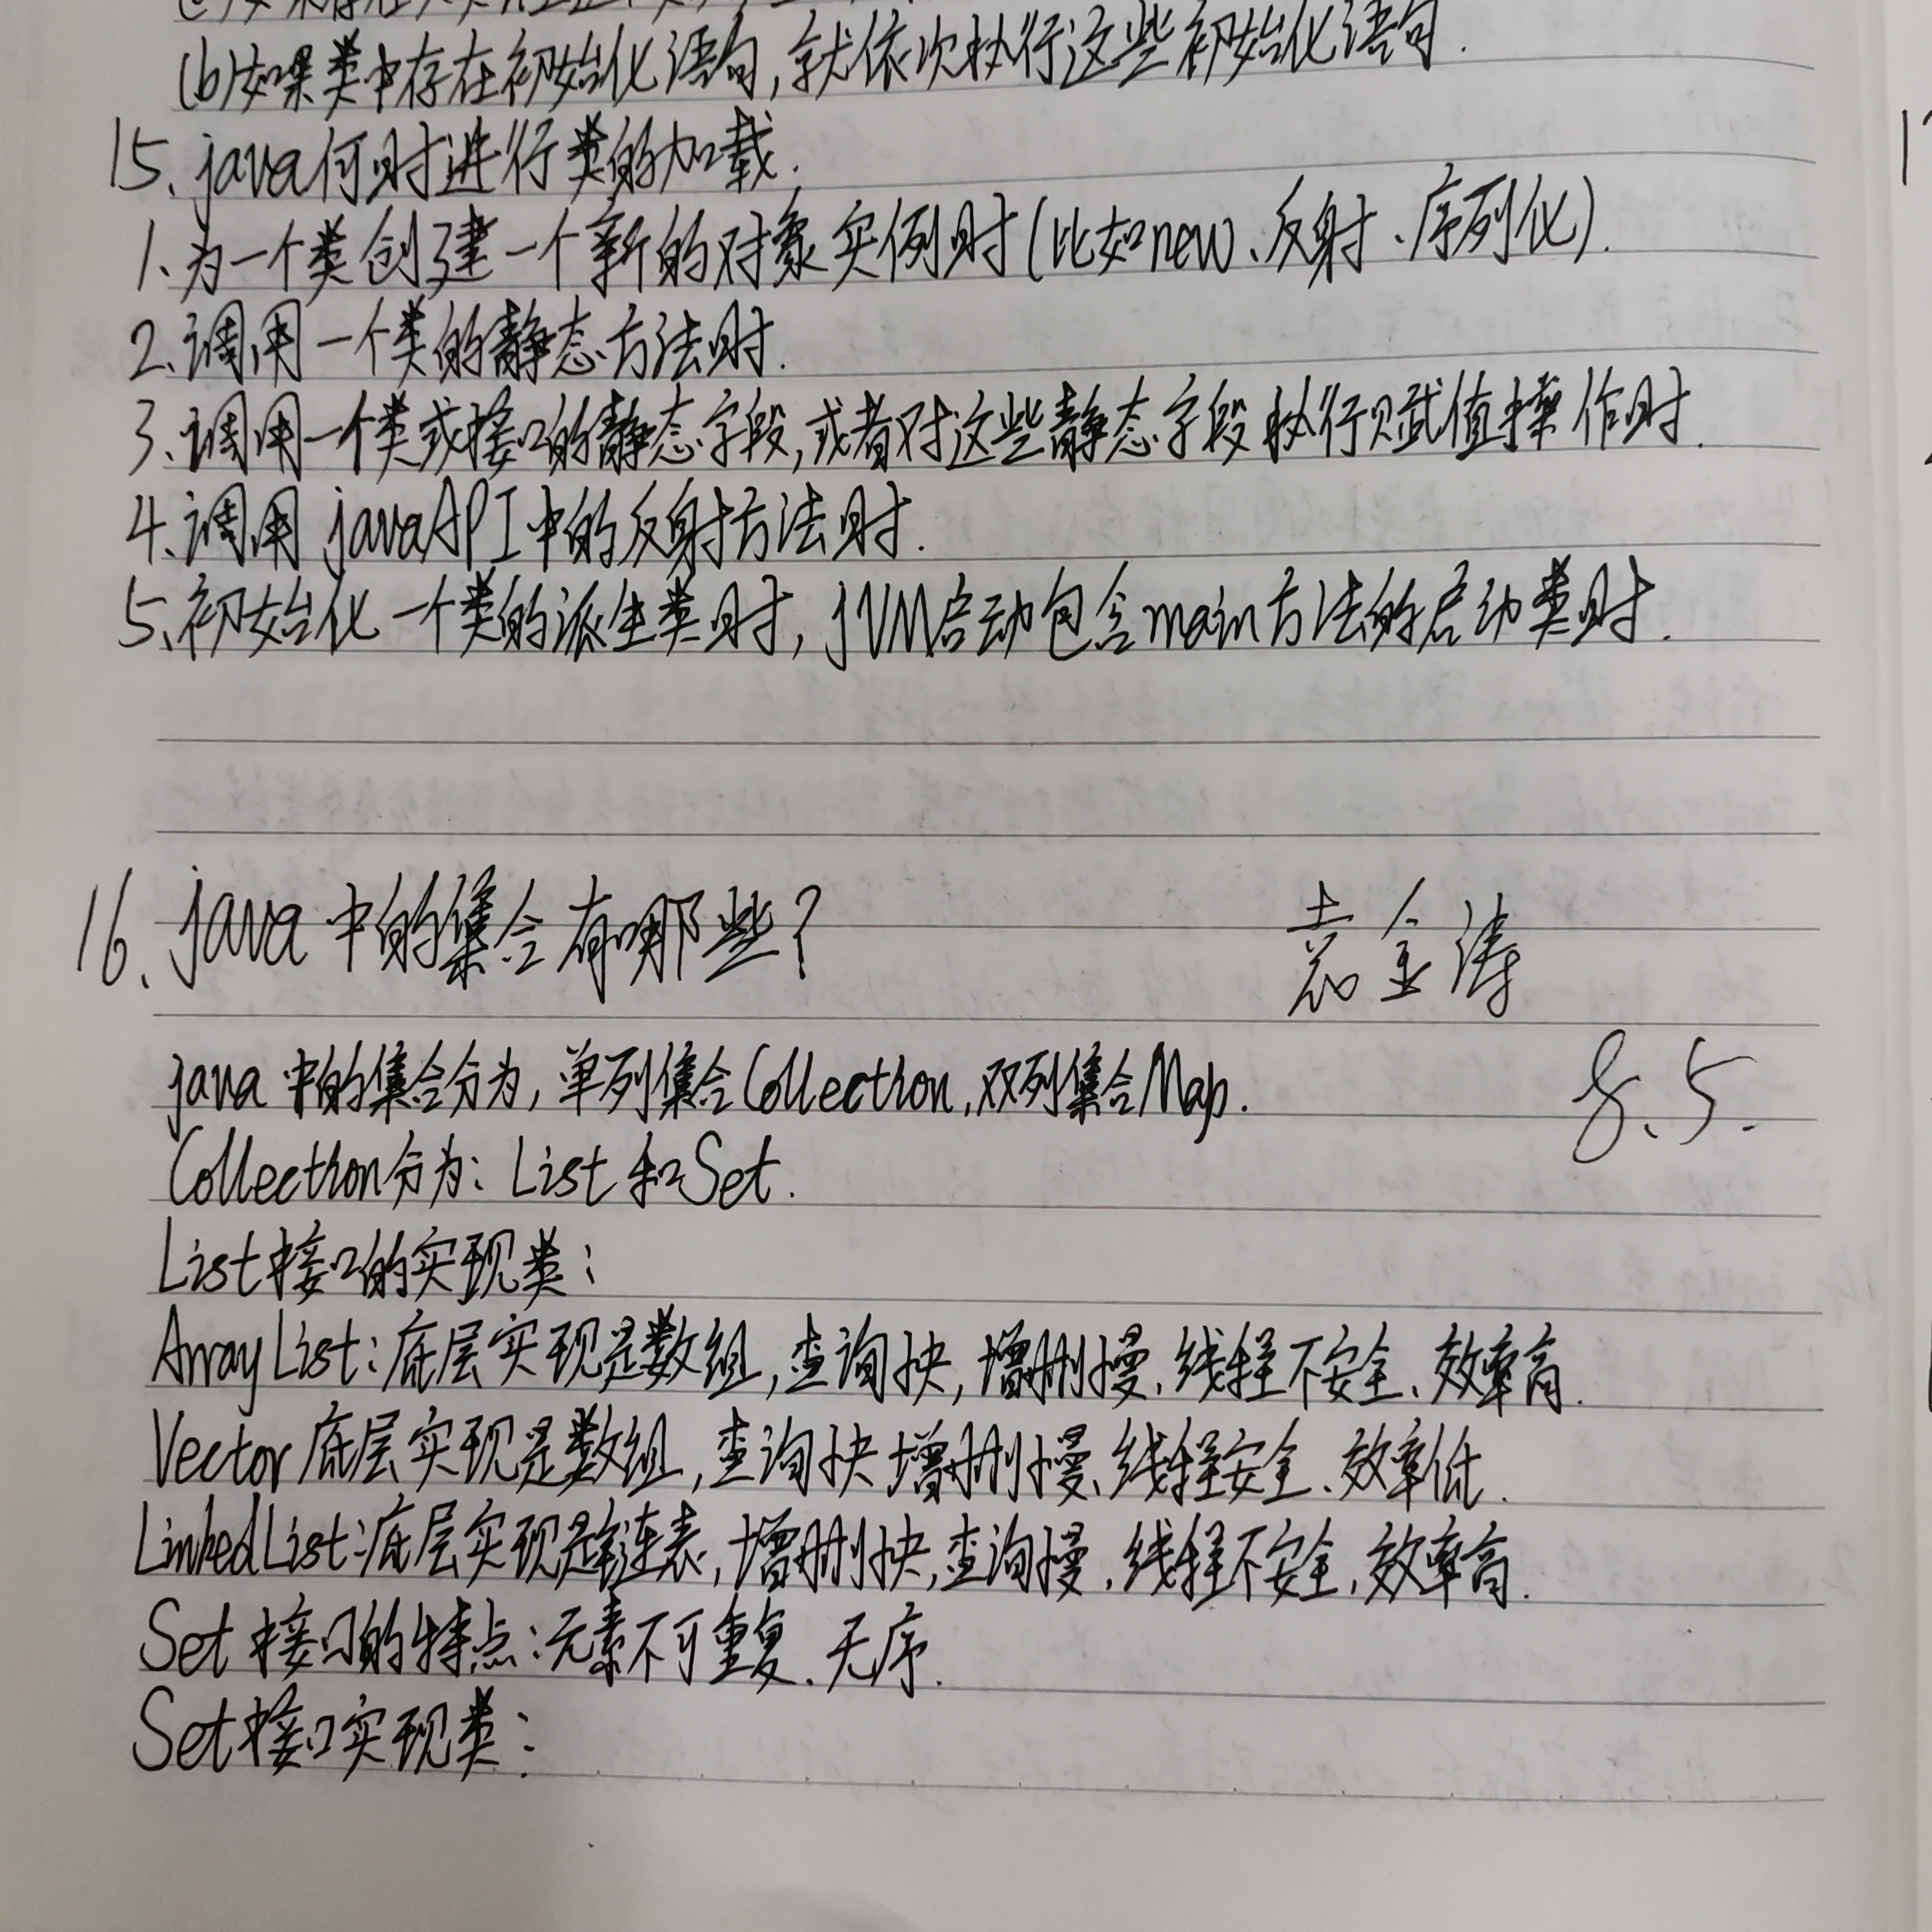 (b)如果类中存在初始化语句,就依次执行这些初始化语句.
15、java何时进行类的加载.
1、为一个类创建一个新的对象实例时(比如new、反射、序列化).
2、调用一个类的静态方法时.
3、调用一个类或接口的静态字段,或者对这些静态字段执行赋值操作时.
4、调用javaAPI中的反射方法时.
5、初始化一个类的派生类时,JVM启动包含main方法的启动类时.
16、java中的集合有哪些? 袁金涛
java中的集合分为,单列集合Collection,双列集合Map. 8.5.
Collection分为: List和Set.
List接口的实现类:
ArrayList:底层实现是数组,查询快,增删慢,线程不安全、效率高.
Vector底层实现是数组,查询快增删慢、线程安全、效率低.
LinkedList:底层实现是链表,增删快,查询慢,线程不安全,效率高.
Set接口的特点:元素不可重复、无序.
Set接口实现类: